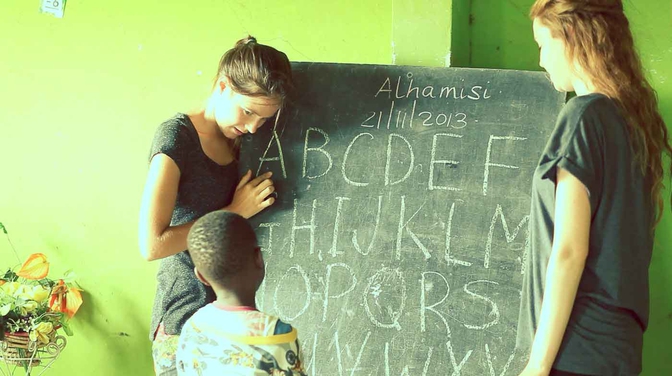 Alhamisi
21/11/2013
ABCDEF
HIJKLM
OPQRS
VWXY